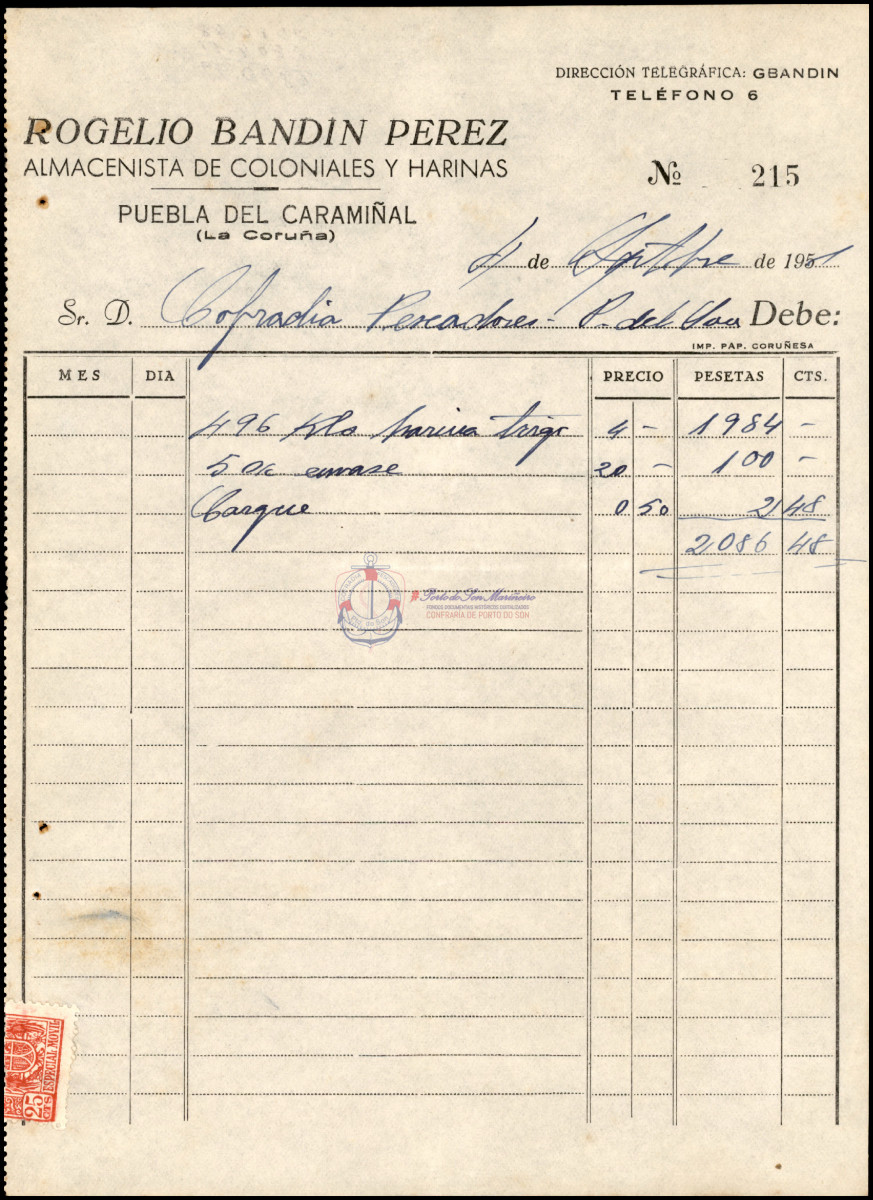 DIRECCIÓN TELEGRÁFICA: GBANDIN
TELÉFONO 6
ROGELIO BANDIN PEREZ
ALMACENISTA DE COLONIALES Y HARINAS
Nº 215
PUEBLA DEL CARAMIÑAL
(La Coruña)
4 de Septbre de 1951
Sr. D. Cofradia Pescadores - P. del Son Debe:
IMP. PAP. CORUÑESA
MES DIA PRECIO PESETAS CTS.
496 Klo harina trigo 4 - 1984 -
5 envase 20 - 100 -
Cargue 0 50 2 48
2086 48
Porto do Son Mariñeiro
FONDOS DOCUMENTAIS HISTÓRICOS DIXITALIZADOS
CONFRARÍA DE PORTO DO SON
ESPECIAL MOVIL
25 CTS